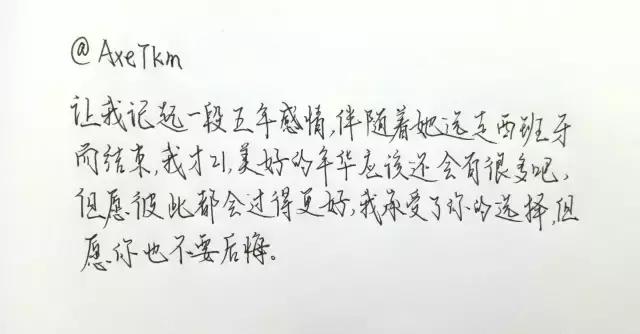 @AxeTkm
让我记起一段五年感情,伴随着她远去西班牙
而结束,我才21,美好的年华应该还会有很多吧,
但愿彼此都会过得更好,我承受了你的选择,但
愿你也不要后悔。